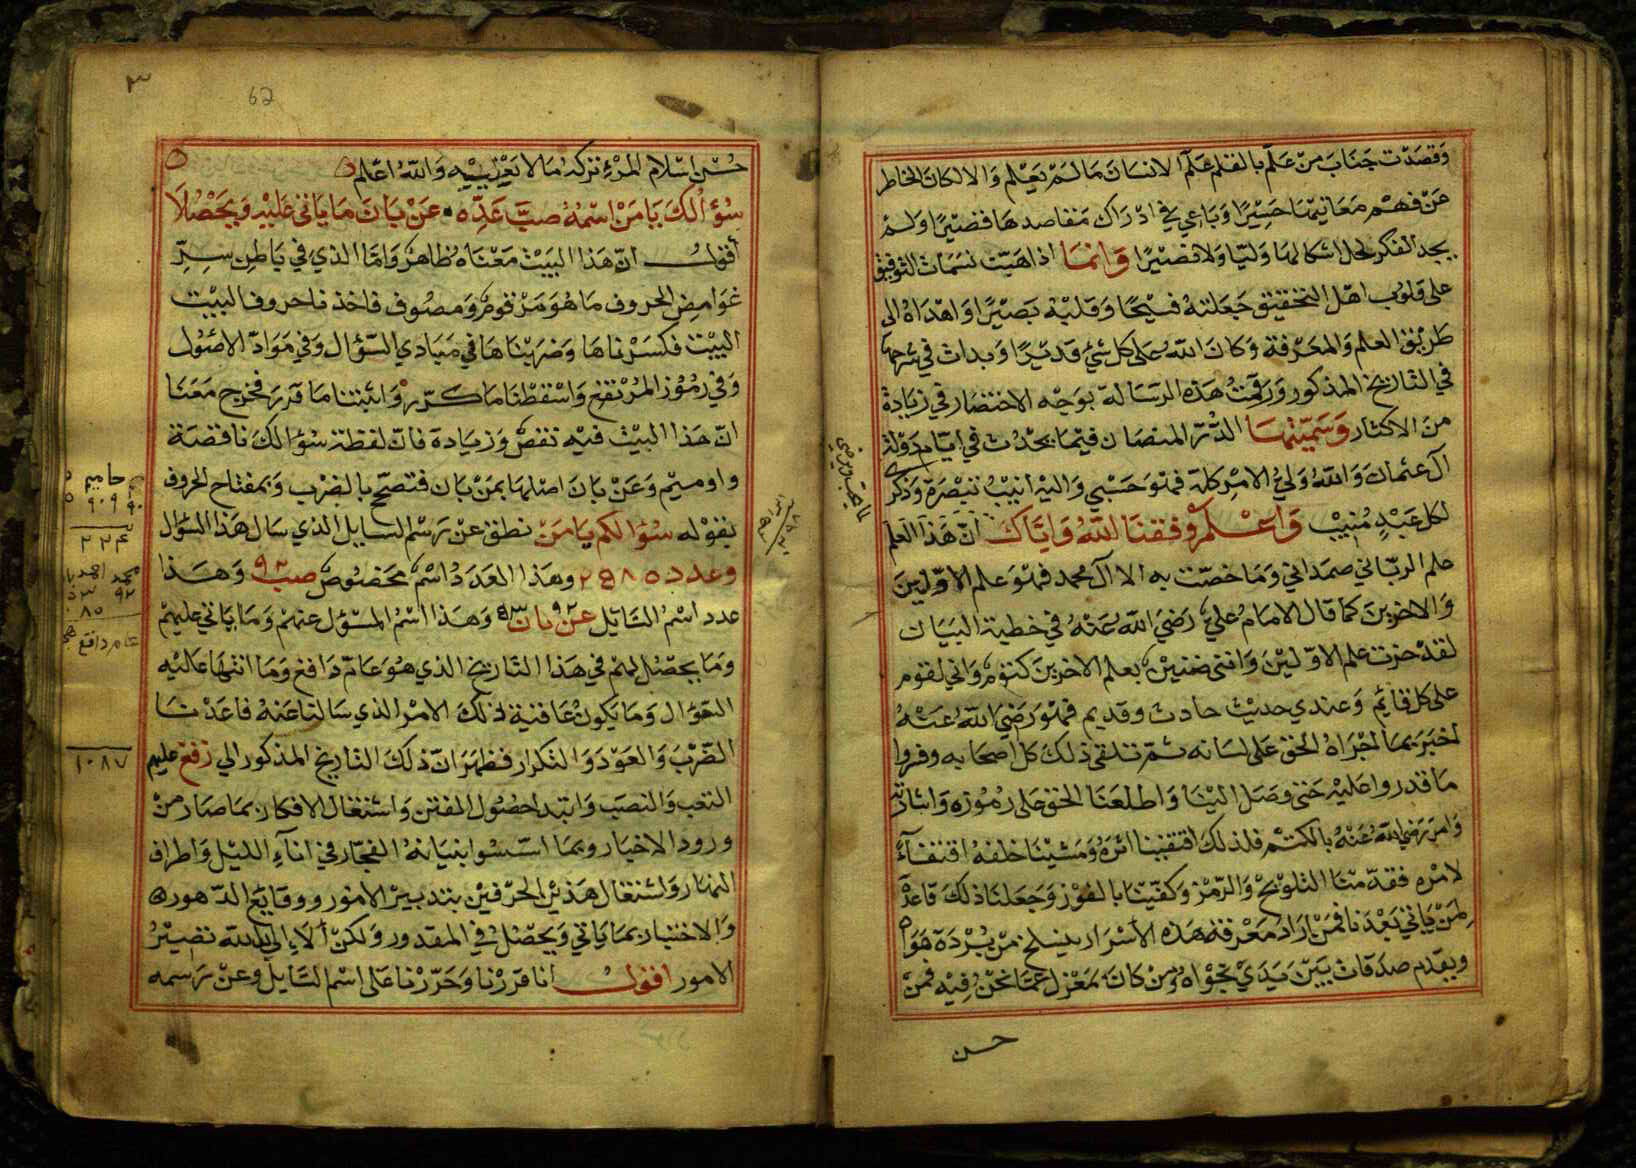 وقصدت جناب من علم بالقلم علم الانسان مالم يعلم والا لكان الخاطر
عن فهم معانيها حسيرا وباعي في ادراك مقاصدها قصيرا ولم
يجد الفكر لحل اشكالها وليا ولا نصيرا وانما اذا هبت نسمات التوفيق
على قلوب اهل التحقيق جعلته فسيحا وقلبه بصيرا واهداه الى
طريق العلم والمعرفة وكان الله على كل شئ قديرا وبدات في شرحها
في التاريخ المذكور ورقمت هذه الرسالة بوجه الاختصار في زيادة
من الاكثار وسميتها الدر المنصان فيما يحدث في ايام دولة
آل عثمان والله ولي الامر كله فهو حسبي واليه انيب تبصرة وذكرى
لكل عبد منيب واعلم وفقنا الله واياك ان هذا العلم
علم الرباني صمداني وما خصت به الا آل محمد فهو علم الاولين
والاخرين كما قال الامام علي رضي الله عنه في خطبة البيان
لقد حزت علم الاولين وانني ضنين بعلم الاخرين كتوم واني لقوم
على كل قايم وعندي حديث حادث وقديم فهو رضي الله عنه
اخبر بما اجراه الحق على لسانه ثم تلقى ذلك كل اصحابه وفروا
ما قدروا عليه حتى وصل الينا واطلعنا الحق على رموزه واشارته
وامر رضي الله عنه بالكتم فلذلك اقتفينا اثره ومشينا خلفه اقتفاء
لامره فقدمنا التلويح والرمز وكفيتا بالفوز وجعلنا ذلك قاعدة
لمن ياتي بعدنا فمن اراد معرفة هذه الاسرار ينسلخ من بردة هواه
ويقدم صدقات بين يدي نجواه ومن كان بمعزل عما نحن فيه فمن
حسن
٣
62
حسن اسلام المرء تركه ما لا يعنيه والله اعلم
سؤالك يا من اسمه صب عده عن بان ما ياتي عليه ويحصلا
أقول ان هذا البيت معناه ظاهر واما الذي في باطن سر
غوامض الحروف ما هو مرقوم ومصوف فاخذنا حروف البيت
البيت فكسرناها وضربناها في مبادي السؤال وفي مواد الاصول
وفي رموز المرتفع واسقطنا ما كرر واثبتنا ما قرر فخرج معنا
ان هذا البيت فيه نقص وزيادة فان لفظة سؤالك ناقصة
واو وميم وعن بان اصلها بمن بان فتصح بالضرب وبمفتاح الحروف
بقوله سؤالكم يا من نطق عن رسم السايل الذي سال هذا السؤال
وعدد وهذا العدد اسم مخصوص صب ٩٢ وهذا
عدد اسم السايل عن بان وهذا اسم المسؤل عنهم وما ياتي عليهم
وما يحصل لهم في هذا التاريخ الذي هو عام دافع وما انتها عاليه
السؤال وما يكون عاقبة ذلك الامر الذي سالتا عنه فاعدنا
الضرب والعود والتكرار فظهر ان ذلك التاريخ المذكور الي زفع عليهم
التعب والنصب وابتدا حصول الفتن واشتغال الافكار بما صار من
ورود الاخيار وبما اسسوا بنيانه الفجار في اناء الليل واطراف
النهار واشتغال هذين الحرفين بتدبير الامور ووقايع الدهور
والاختيار بما ياتي ويحصل في المقدور ولكن ألا الى الله تصير
الامور اقول انا قررنا وحررنا على اسم السايل وعن رسمه
حاميم
٢٢٤
محمد احمد
٩٢ ٥٣
٨٥
عام دافع
١٠٨٧